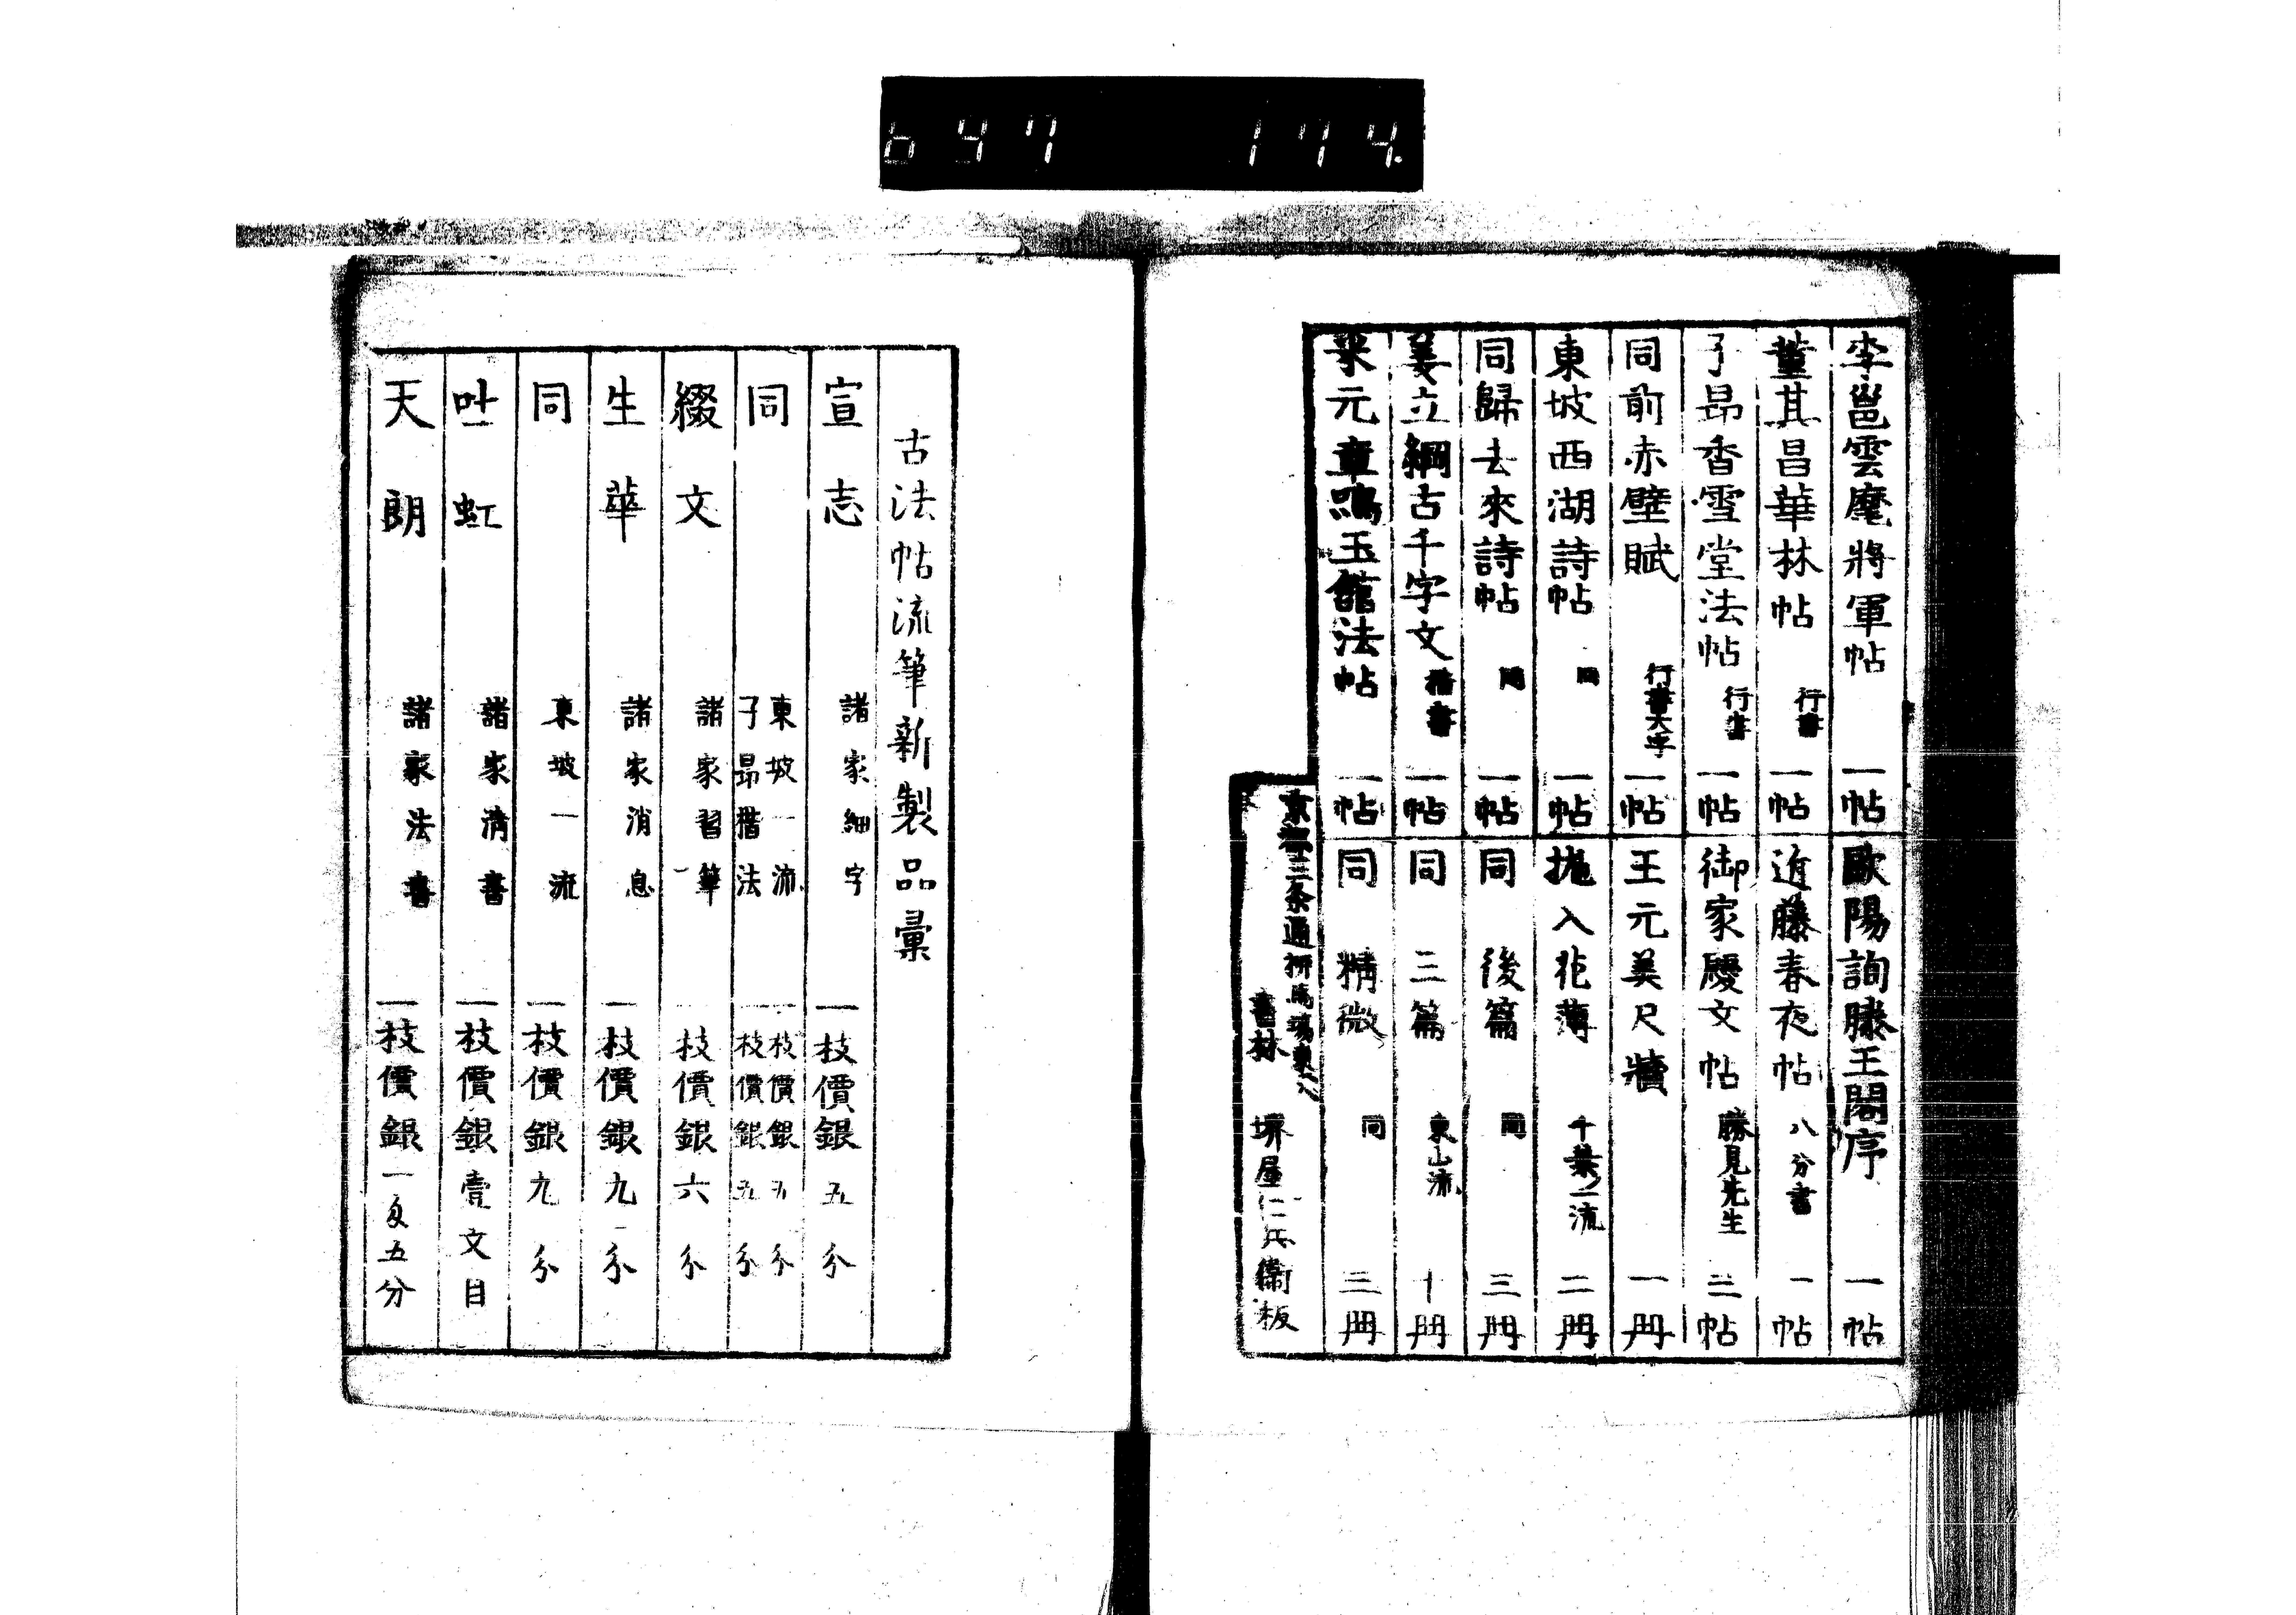 647 174.
李邕雲麾將軍帖 一帖
董其昌華林帖 行書 一帖
子昂香雪堂法帖 行書 一帖
同前赤壁賦 行書大字 一帖
東坡西湖詩帖 同 一帖
同歸去來詩帖 同 一帖
姜立綱古千字文 楷書 一帖
米元章鳴玉舘法帖 一帖
歐陽詢滕王閣序 一帖
近藤春夜帖 八分書 一帖
御家慶文帖 勝見先生 三帖
王元美尺牘 一冊
抛入花薄 千葉流 二冊
同 後篇 同 三冊
同 三篇 東山流 十冊
同 精微 同 三冊
京都三条通柳馬場東へ入
書林 堺屋仁兵衛板
古法帖流筆新製品彙
宣志 諸家細字 一枝價銀五分
同 東坡一流 一枝價銀五分
子昂楷法 一枝價銀五分
綴文 諸家習筆 一枝價銀六分
生華 諸家消息 一枝價銀九分
同 東坡一流 一枝價銀九分
吐虹 諸家清書 一枝價銀壹文目
天朗 諸家法書 一枝價銀一匁五分